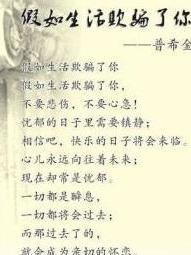 假如生活欺骗了你
——普希金
假如生活欺骗了你
假如生活欺骗了你，
不要悲伤，不要心急！
忧郁的日子里需要镇静；
相信吧，快乐的日子将会来临。
心儿永远向往着未来；
现在却常是忧郁。
一切都是瞬息，
一切都将会过去；
而那过去了的，
就会成为亲切的怀恋。